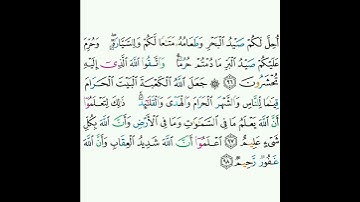 أُحِلَّ لَكُمْ صَيْدُ ٱلْبَحْرِ وَطَعَامُهُۥ مَتَٰعًا لَّكُمْ وَلِلسَّيَّارَةِ ۖ وَحُرِّمَ
عَلَيْكُمْ صَيْدُ ٱلْبَرِّ مَا دُمْتُمْ حُرُمًا ۗ وَٱتَّقُوا۟ ٱللَّهَ ٱلَّذِىٓ إِلَيْهِ
تُحْشَرُونَ ٩٦ ۞ جَعَلَ ٱللَّهُ ٱلْكَعْبَةَ ٱلْبَيْتَ ٱلْحَرَامَ
قِيَٰمًا لِّلنَّاسِ وَٱلشَّهْرَ ٱلْحَرَامَ وَٱلْهَدْىَ وَٱلْقَلَٰٓئِدَ ۚ ذَٰلِكَ لِتَعْلَمُوٓا۟
أَنَّ ٱللَّهَ يَعْلَمُ مَا فِى ٱلسَّمَٰوَٰتِ وَمَا فِى ٱلْأَرْضِ وَأَنَّ ٱللَّهَ بِكُلِّ
شَىْءٍ عَلِيمٌ ٩٧ ٱعْلَمُوٓا۟ أَنَّ ٱللَّهَ شَدِيدُ ٱلْعِقَابِ وَأَنَّ ٱللَّهَ
غَفُورٌ رَّحِيمٌ ٩٨